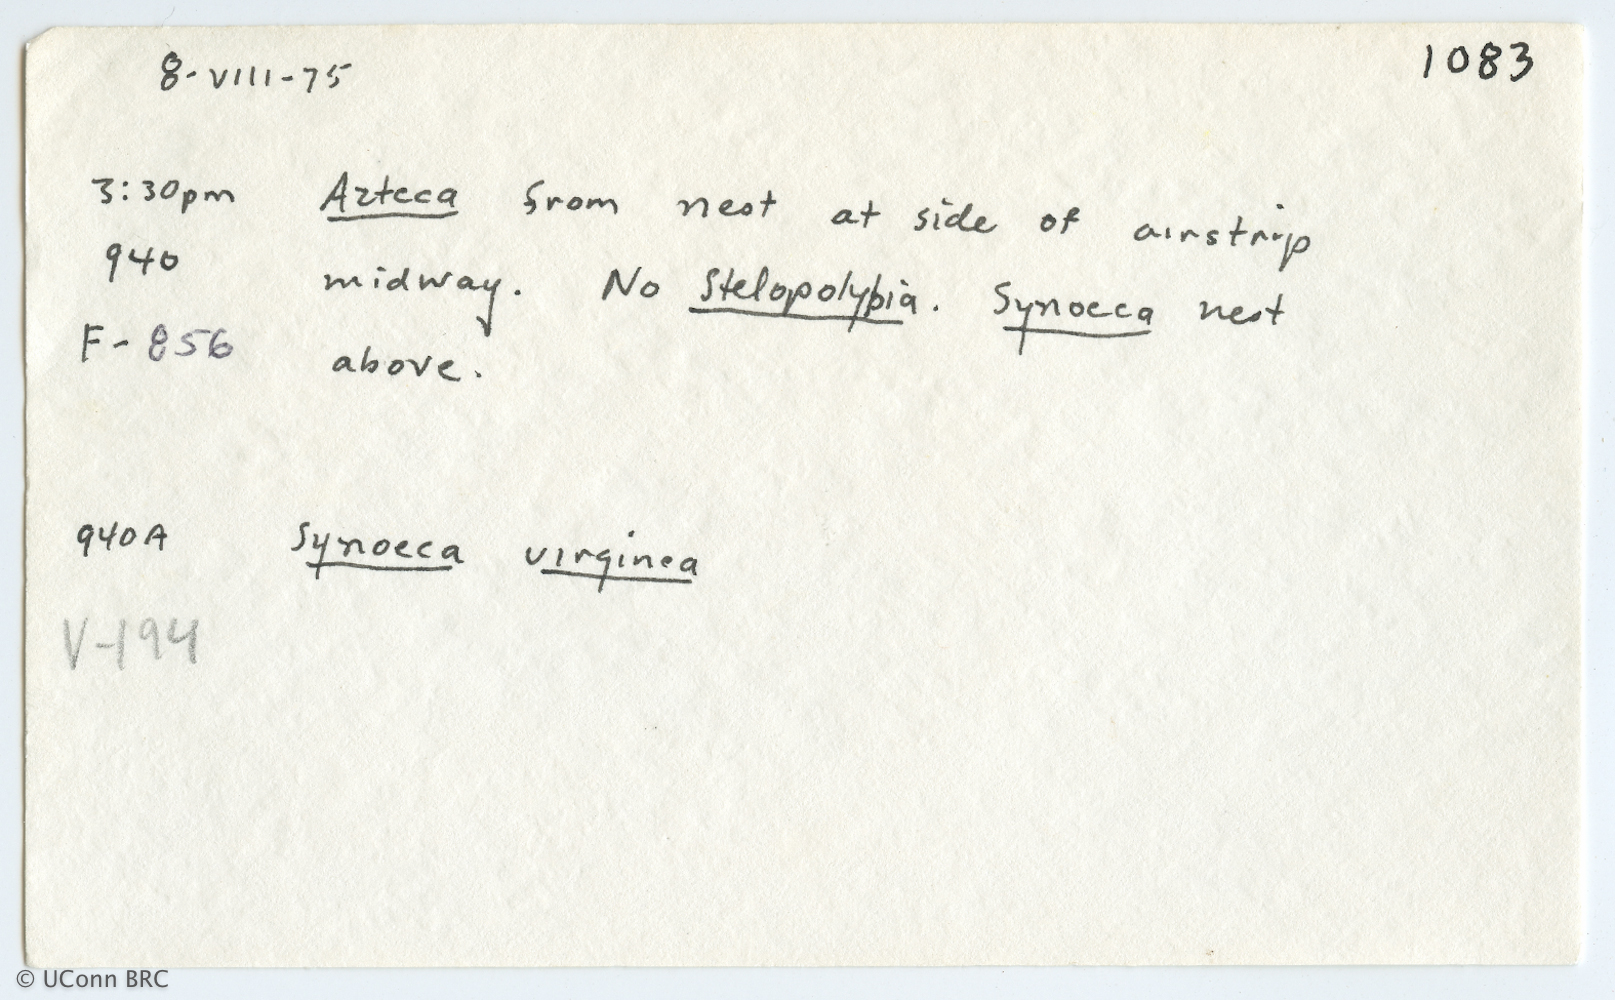 8-VIII-75 1083
3:30pm Azteca from nest at side of airstrip
940 midway. No Stelopolybia. Synoeca nest
F-856 above.
940A Synoeca virginea
V-194
© UConn BRC